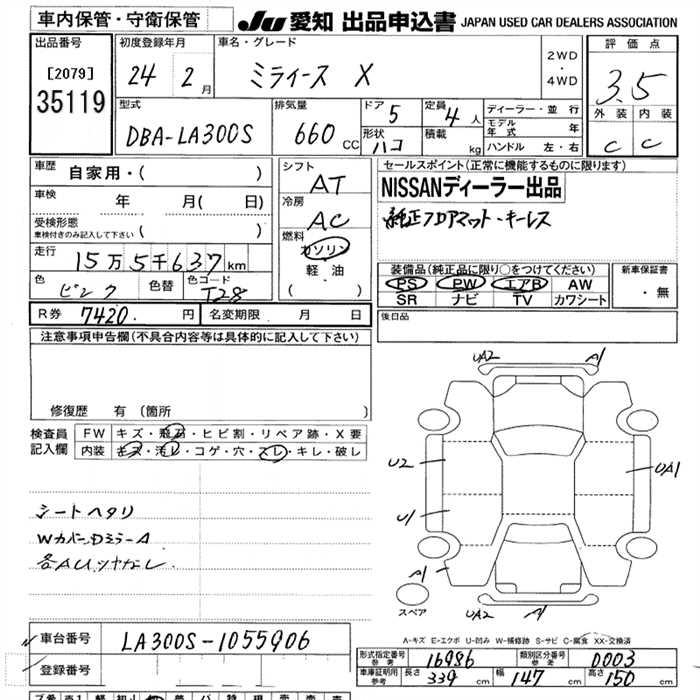 車内保管・守衛保管
JU 愛知 出品申込書 JAPAN USED CAR DEALERS ASSOCIATION
出品番号
[2079]
35119
初度登録年月
24 2月
車名・グレード
ミライース X
2WD
・
4WD
評価点
3.5
外装 内装
C C
型式
DBA-LA300S
排気量
660 CC
ドア 5
形状 ハコ
定員 4人
積載 kg
ディーラー・並行
モデル年式
ハンドル 左・右
車歴 自家用・( )
車検 年 月( 日)
受検形態
車検付きのみ記入して下さい ( )
走行 15万5千637km
色 ピンク 色替 色コード T28
R券 7420 円 名変期限 月 日
シフト
AT
冷房
AC
燃料
ガソリン
軽油
( )
セールスポイント(正常に機能するものに限ります)
NISSANディーラー出品
純正フロアマット・キーレス
装備品(純正品に限り○をつけてください)
PS PW エアB AW
SR ナビ TV カワシート
新車保証書
・無
後日品
注意事項申告欄(不具合内容等は具体的に記入して下さい)
修復歴 有(箇所 )
検査員記入欄
FW キズ・飛石・ヒビ割・リペア跡・X要
内装 キズ・汚レ・コゲ・穴・スレ・キレ・破レ
シートヘタリ
WカバーDミラーA
各AUツヤなし
UA2 A1
U2
UA1
U1
A1
スペア
UA2 A1
A-キズ E-エクボ U-凹み W-補修跡 S-サビ C-腐食 XX-交換済
車台番号 LA300S-1055906
登録番号
形式指定番号 参考 16986 類別区分番号 参考 0003
車庫証明用 参考 長さ 339 幅 147 高さ 150
cm